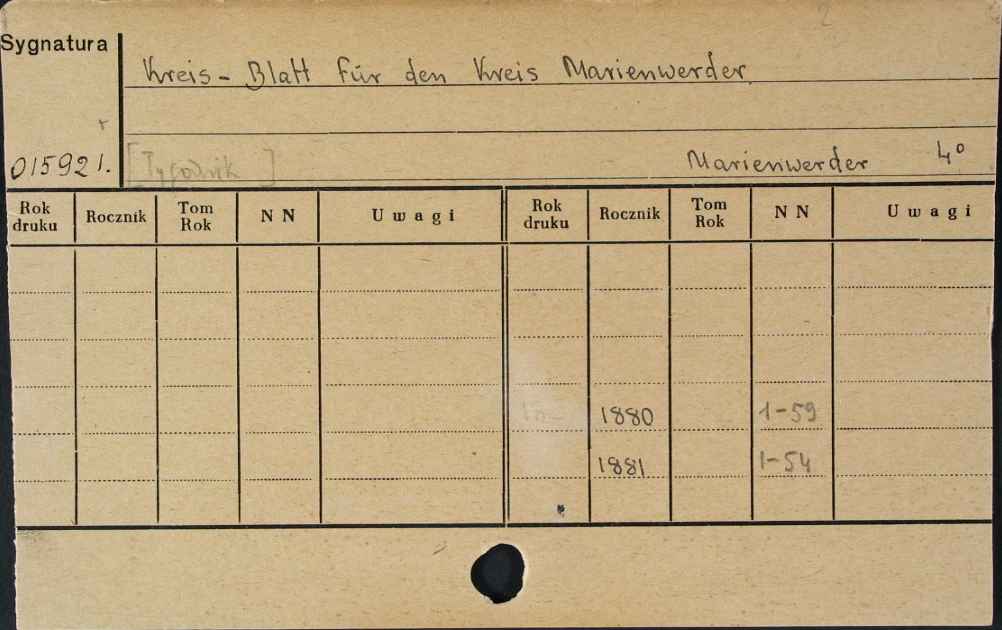 2
Sygnatura
Kreis - Blatt für den Kreis Marienwerder
015921. [Tygodnik] Marienwerder 4°
Rok druku Rocznik Tom Rok N N Uwagi Rok druku Rocznik Tom Rok N N Uwagi
1880 1-59
1881 1-54